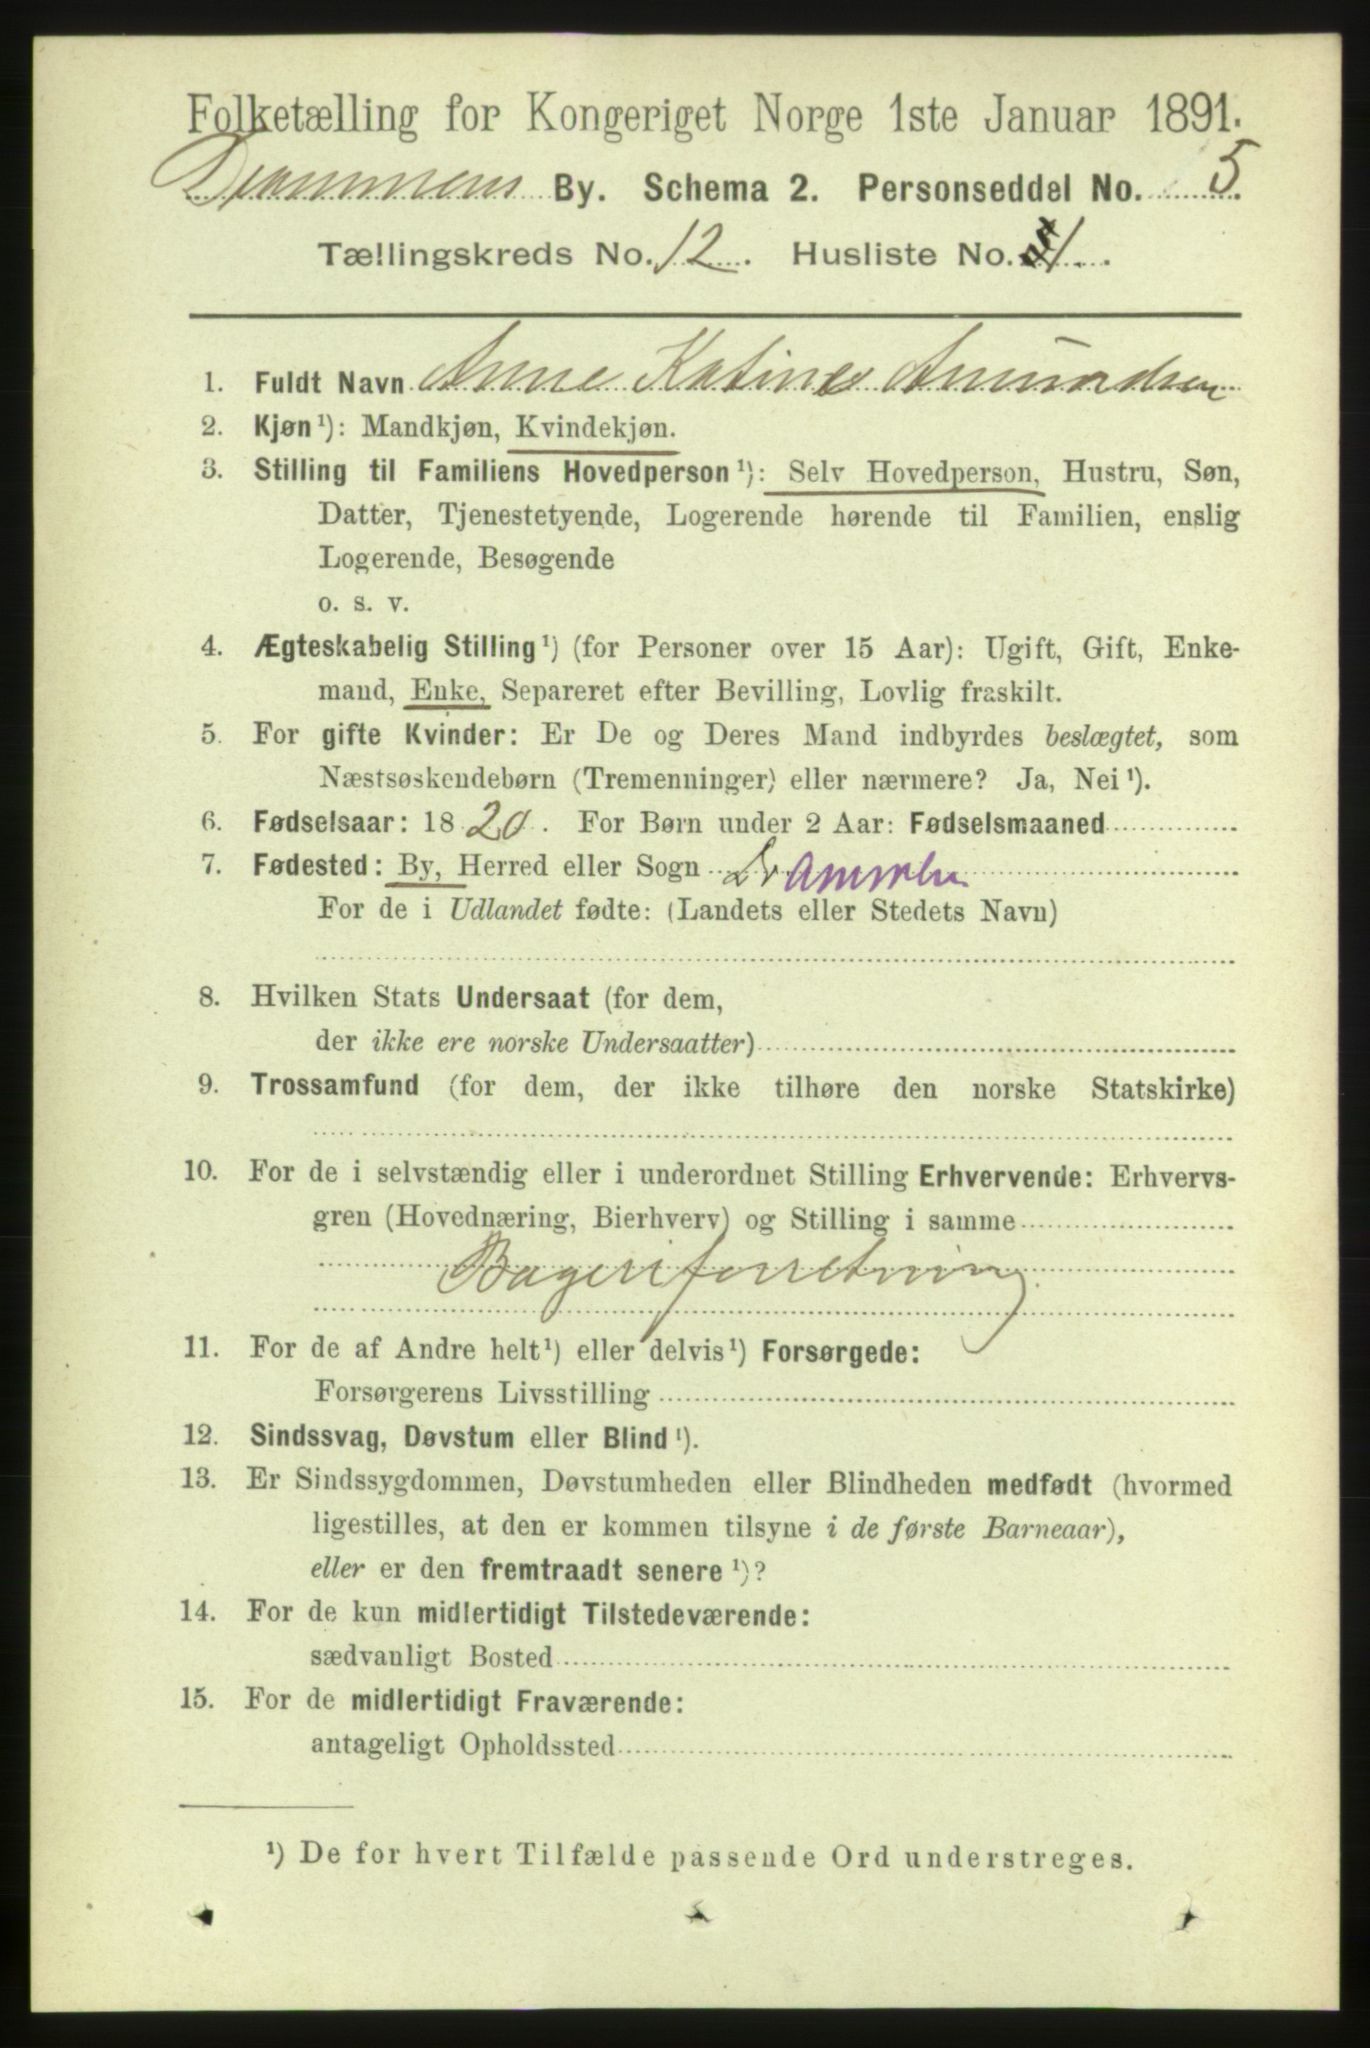 Folketælling for Kongeriget Norge 1ste Januar 1891.
Drammens By. Schema 2. Personseddel No. 5.
Tællingskreds No. 12. Husliste No. 1.
1. Fuldt Navn Anne Katine Amundsen
2. Kjøn¹): Mandkjøn, Kvindekjøn.
3. Stilling til Familiens Hovedperson¹): Selv Hovedperson, Hustru, Søn,
Datter, Tjenestetyende, Logerende hørende til Familien, enslig
Logerende, Besøgende
o. s. v.
4. Ægteskabelig Stilling¹) (for Personer over 15 Aar): Ugift, Gift, Enke-
mand, Enke, Separeret efter Bevilling, Lovlig fraskilt.
5. For gifte Kvinder: Er De og Deres Mand indbyrdes beslægtet, som
Næstsøskendebørn (Tremenninger) eller nærmere? Ja, Nei¹).
6. Fødselsaar: 1820. For Børn under 2 Aar: Fødselsmaaned
7. Fødested: By, Herred eller Sogn Drammen
For de i Udlandet fødte: (Landets eller Stedets Navn)
8. Hvilken Stats Undersaat (for dem,
der ikke ere norske Undersaatter)
9. Trossamfund (for dem, der ikke tilhøre den norske Statskirke)
10. For de i selvstændig eller i underordnet Stilling Erhvervende: Erhvervs-
gren (Hovednæring, Bierhverv) og Stilling i samme
Bageriforretning
11. For de af Andre helt¹) eller delvis¹) Forsørgede:
Forsørgerens Livsstilling
12. Sindssvag, Døvstum eller Blind¹).
13. Er Sindssygdommen, Døvstumheden eller Blindheden medfødt (hvormed
ligestilles, at den er kommen tilsyne i de første Barneaar),
eller er den fremtraadt senere¹)?
14. For de kun midlertidigt Tilstedeværende:
sædvanligt Bosted
15. For de midlertidigt Fraværende:
antageligt Opholdssted
¹) De for hvert Tilfælde passende Ord understreges.